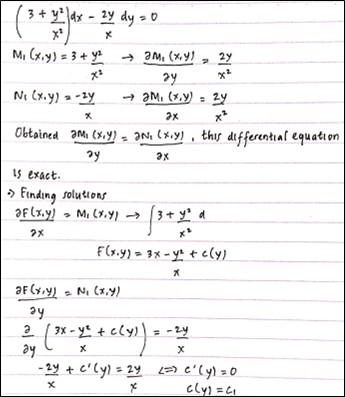 (3 + y²/x²) dx - 2y/x dy = 0
M₁(x,y) = 3 + y²/x² → ∂M₁(x,y)/∂y = 2y/x²
N₁(x,y) = -2y/x → ∂M₁(x,y)/∂x = 2y/x²
Obtained ∂M₁(x,y)/∂y = ∂N₁(x,y)/∂x, this differential equation
is exact.
⇒ Finding solutions
∂F(x,y)/∂x = M₁(x,y) → ∫ 3 + y²/x² d
F(x,y) = 3x - y²/x + c(y)
∂F(x,y)/∂y = N₁(x,y)
∂/∂y (3x - y²/x + c(y)) = -2y/x
-2y/x + c'(y) = 2y/x ⇔ c'(y) = 0
c(y) = c₁